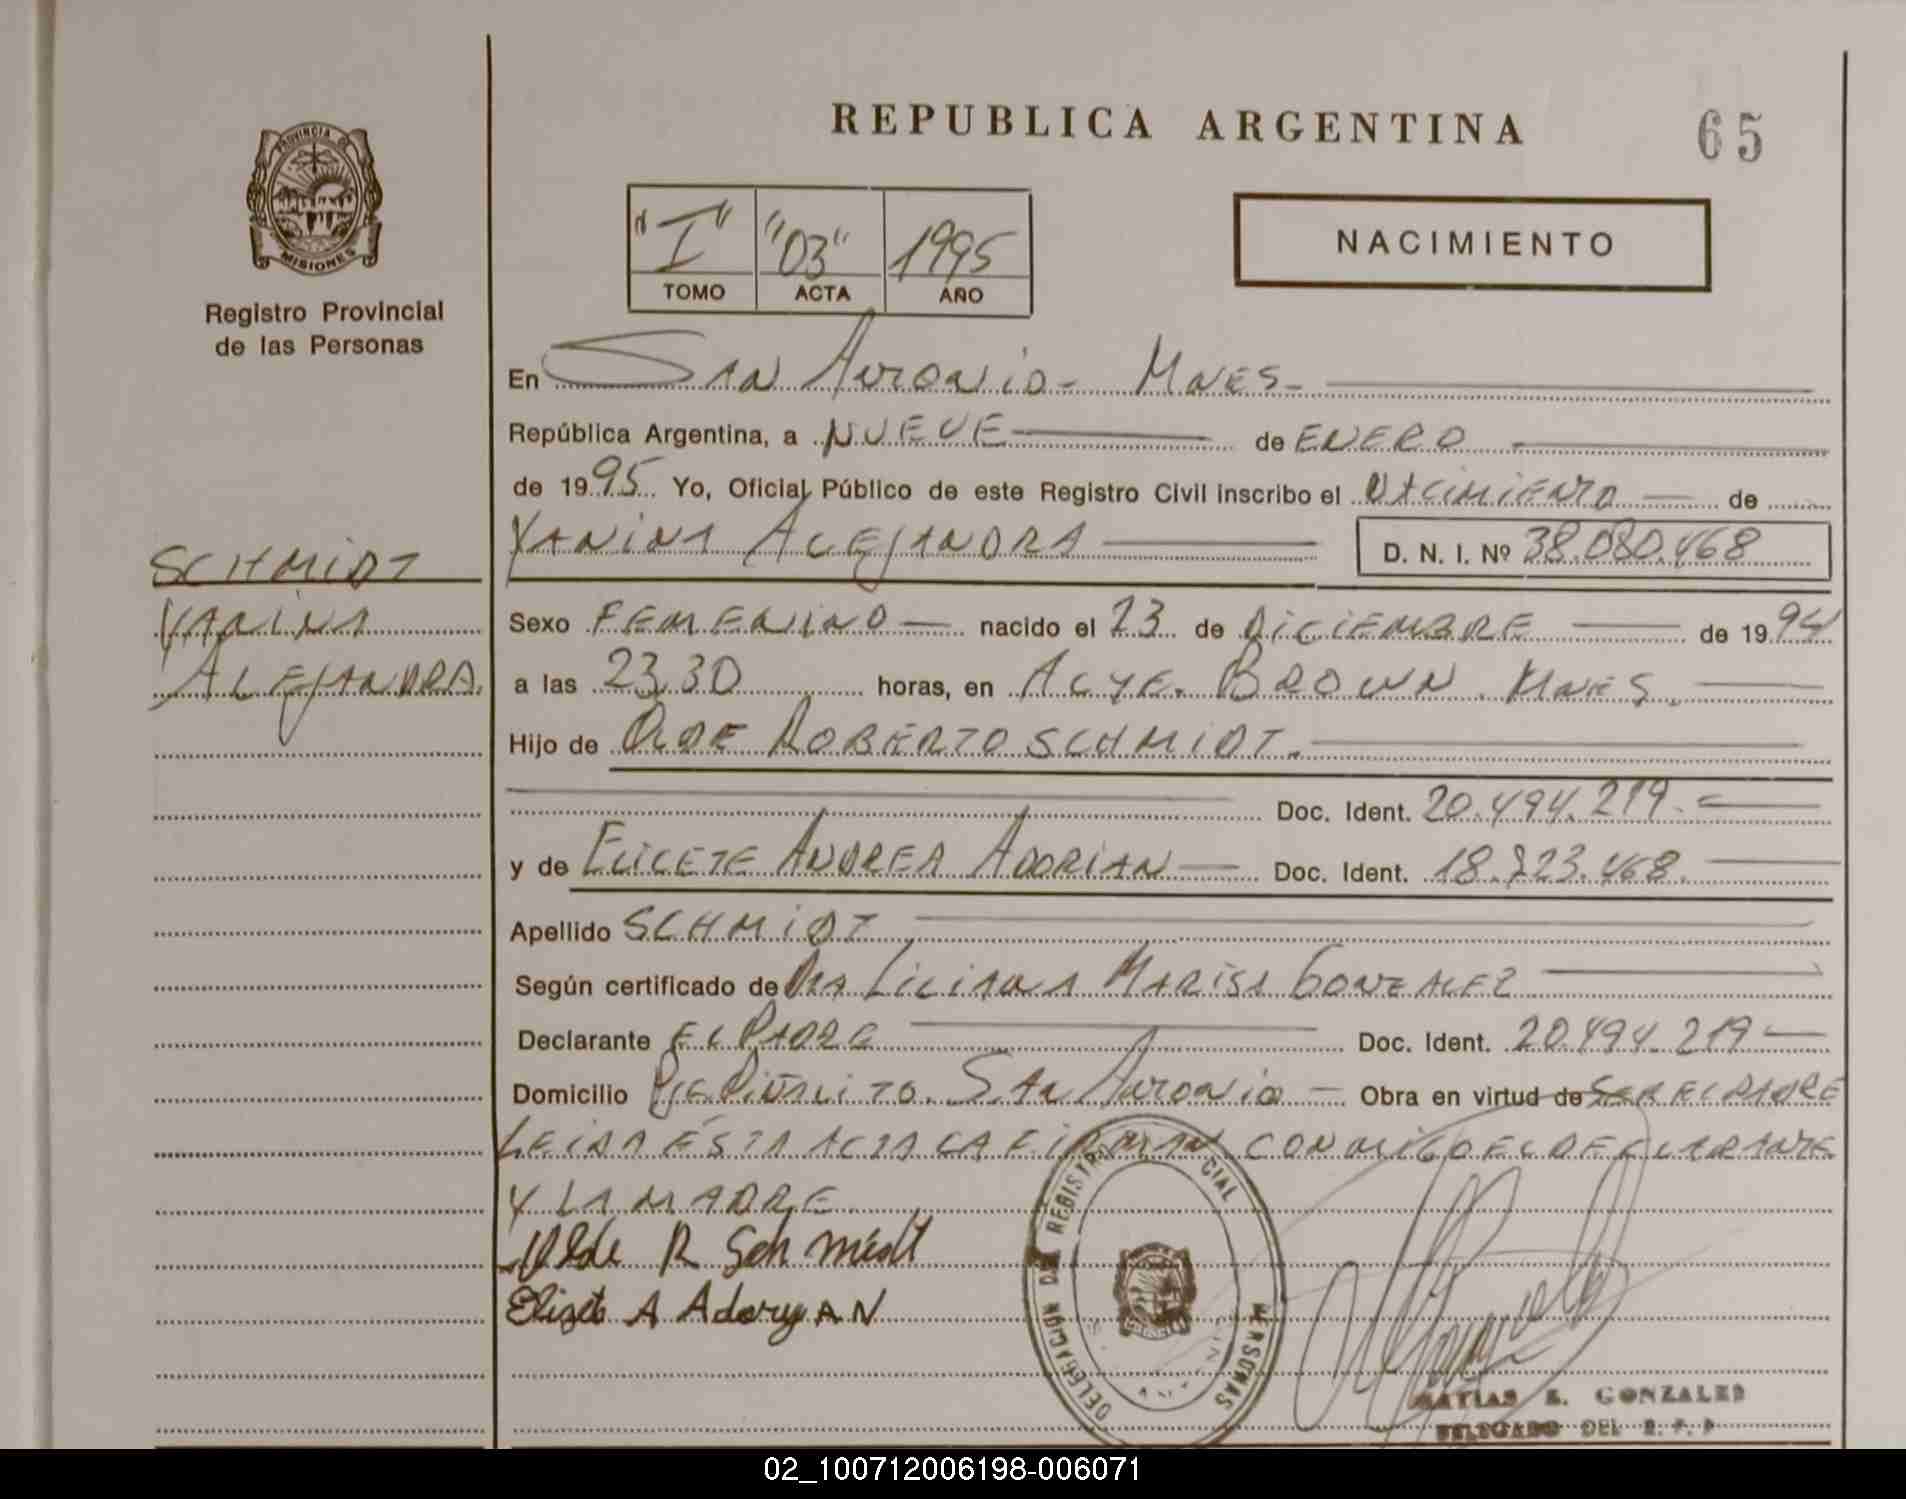 REPUBLICA ARGENTINA
65
PROVINCIA DE
MISIONES
Registro Provincial
de las Personas
"I" "03" 1995
TOMO ACTA AÑO
NACIMIENTO
En SAN ANTONIO - MNES -
República Argentina, a NUEVE de ENERO
de 1995 Yo, Oficial Público de este Registro Civil inscribo el NACIMIENTO de
YANINA ALEJANDRA D. N. I. Nº 38.080.468
SCHMIDT
YANINA
ALEJANDRA.
Sexo FEMENINO nacido el 23 de DICIEMBRE de 1994
a las 23,30 horas, en ALTE. BROWN. MNES.
Hijo de ROBERTO SCHMIDT.
Doc. Ident. 20.494.219.
y de ELICETE ANDREA ADORIAN Doc. Ident. 18.723.468.
Apellido SCHMIDT
Según certificado de DRA LILIANA MARISA GONZALEZ
Declarante EL PADRE Doc. Ident. 20.494.219
Domicilio PJE PIÑALITO. SAN ANTONIO Obra en virtud de SER EL PADRE
LEIDA ÉSTA ACTA LA FIRMAN CONMIGO EL DECLARANTE
Y LA MADRE.
R Schmidt
Elizete A Adoryan
DELEGACION DEL REGISTRO PROVINCIAL PERSONAS
MATIAS E. GONZALES
DELEGADO DEL R. P. P
02_100712006198-006071